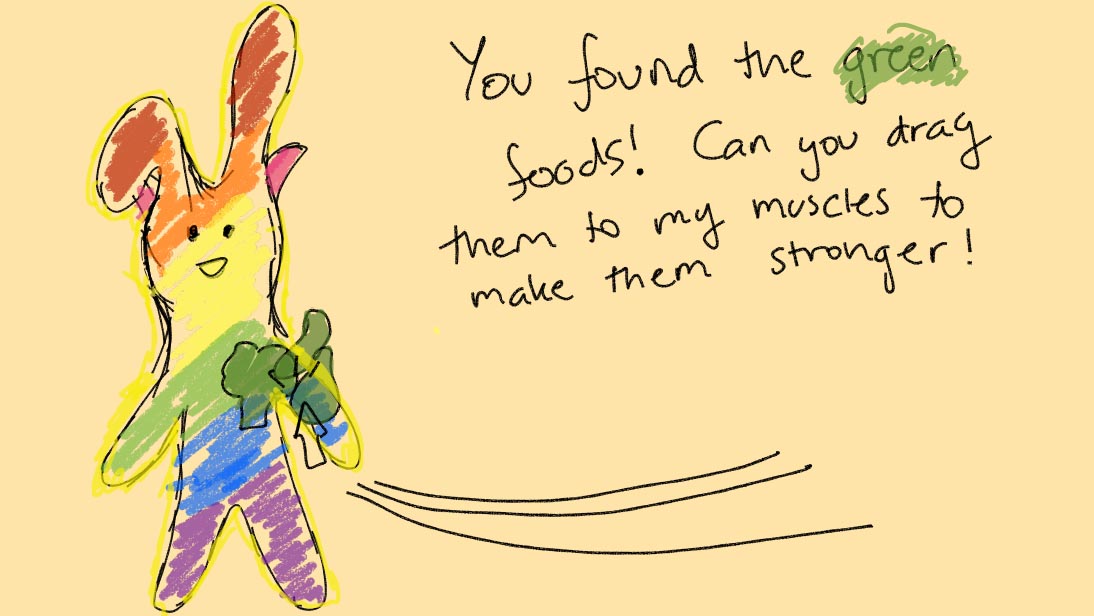 You found the green
foods! Can you drag
them to my muscles to
make them stronger!